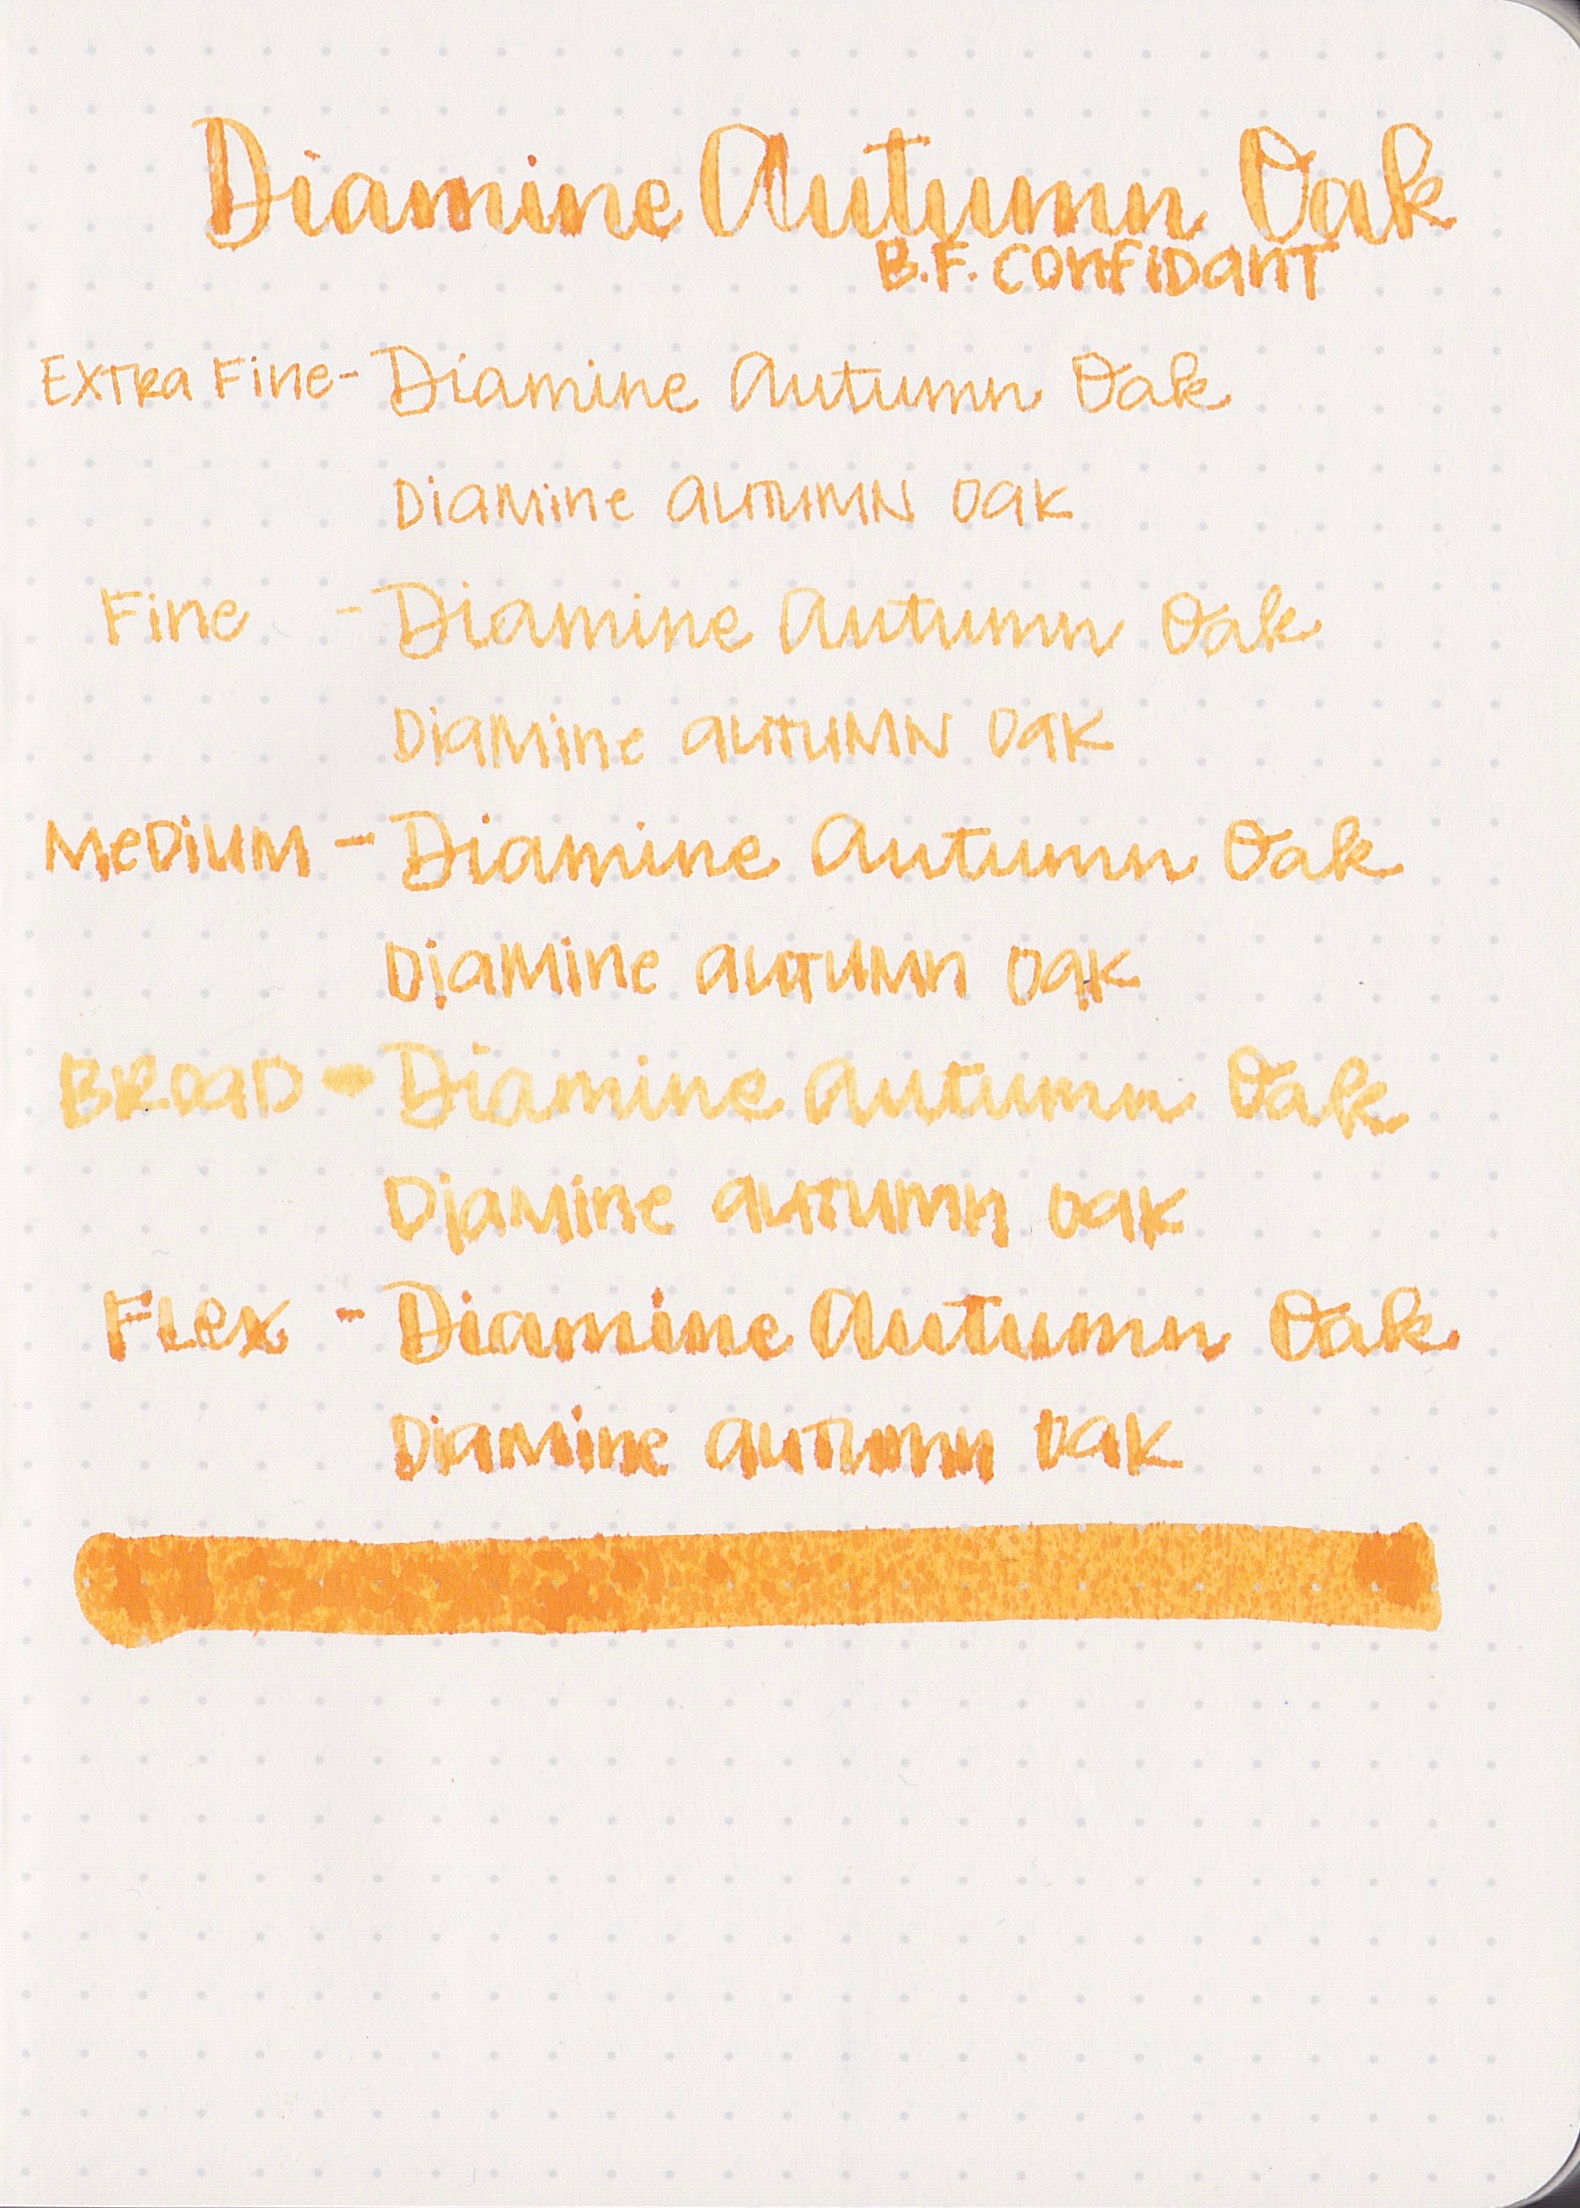 Diamine Autumn Oak
B.F. Confidant
Extra Fine - Diamine Autumn Oak
Diamine Autumn Oak
Fine - Diamine Autumn Oak
Diamine Autumn Oak
Medium - Diamine Autumn Oak
Diamine Autumn Oak
Broad - Diamine Autumn Oak
Diamine Autumn Oak
Flex - Diamine Autumn Oak
Diamine Autumn Oak